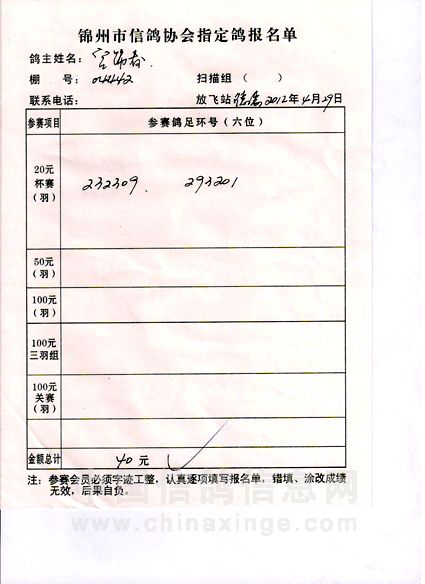 锦州市信鸽协会指定鸽报名单
鸽主姓名:
棚 号: 04442 扫描组 ( )
联系电话: 放飞站 2012年4月29日
参赛项目 参赛鸽足环号(六位)
20元
杯赛
(羽)
232309. 293201
50元
(羽)
100元
(羽)
100元
三羽组
100元
关赛
(羽)
金额总计 40元
注: 参赛会员必须字迹工整,认真逐项填写报名单,错填、涂改成绩
无效,后果自负。
中国信鸽信息网
www.chinaxinge.com